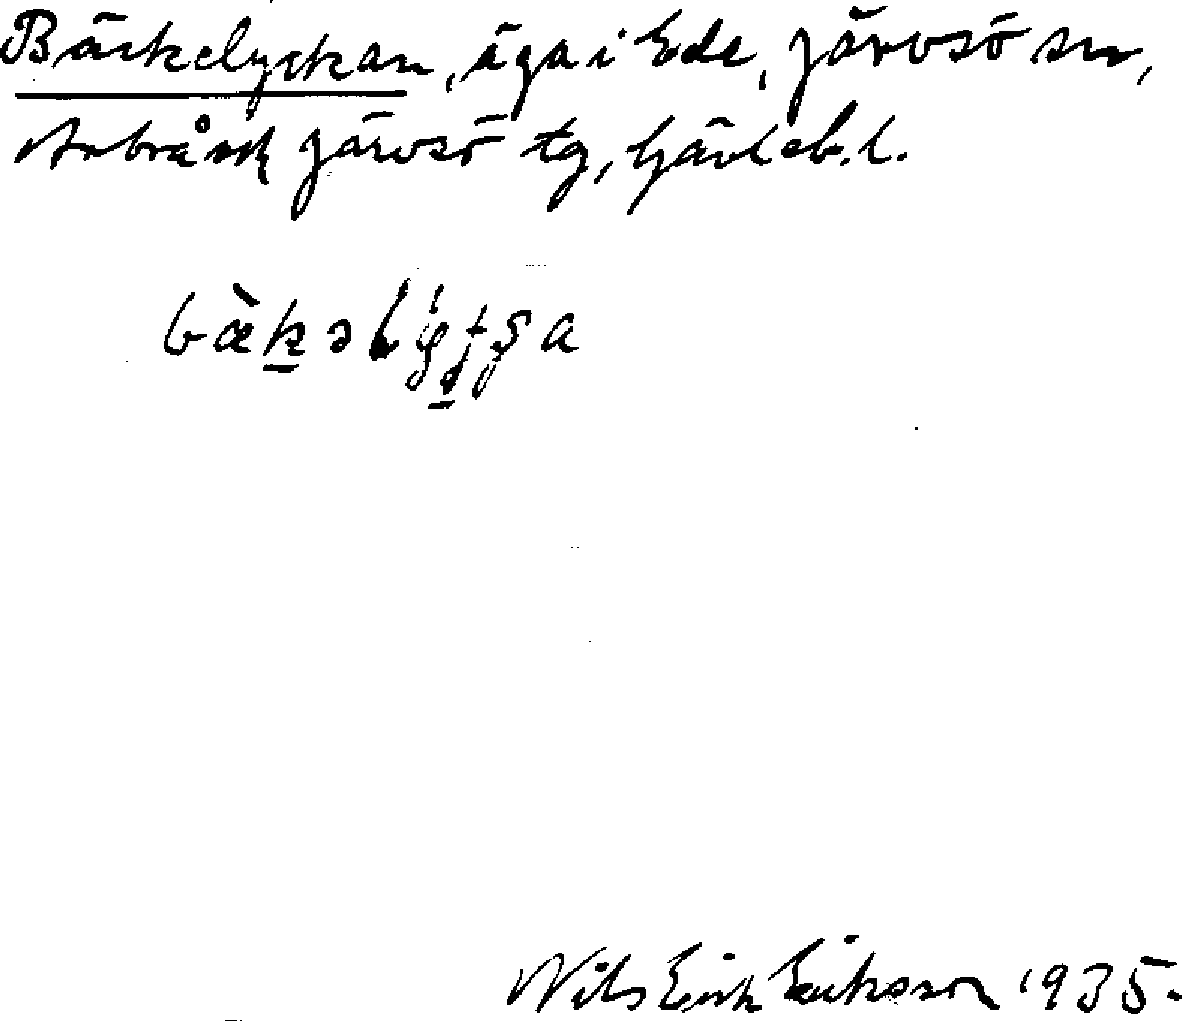 Bäckelyckan, äga i Ede, Järvsö sn,
Arbrå och Järvsö tg, Gävleb. l.
bæ̀kəlýtʂa
Nils Erik Eriksson 1935.